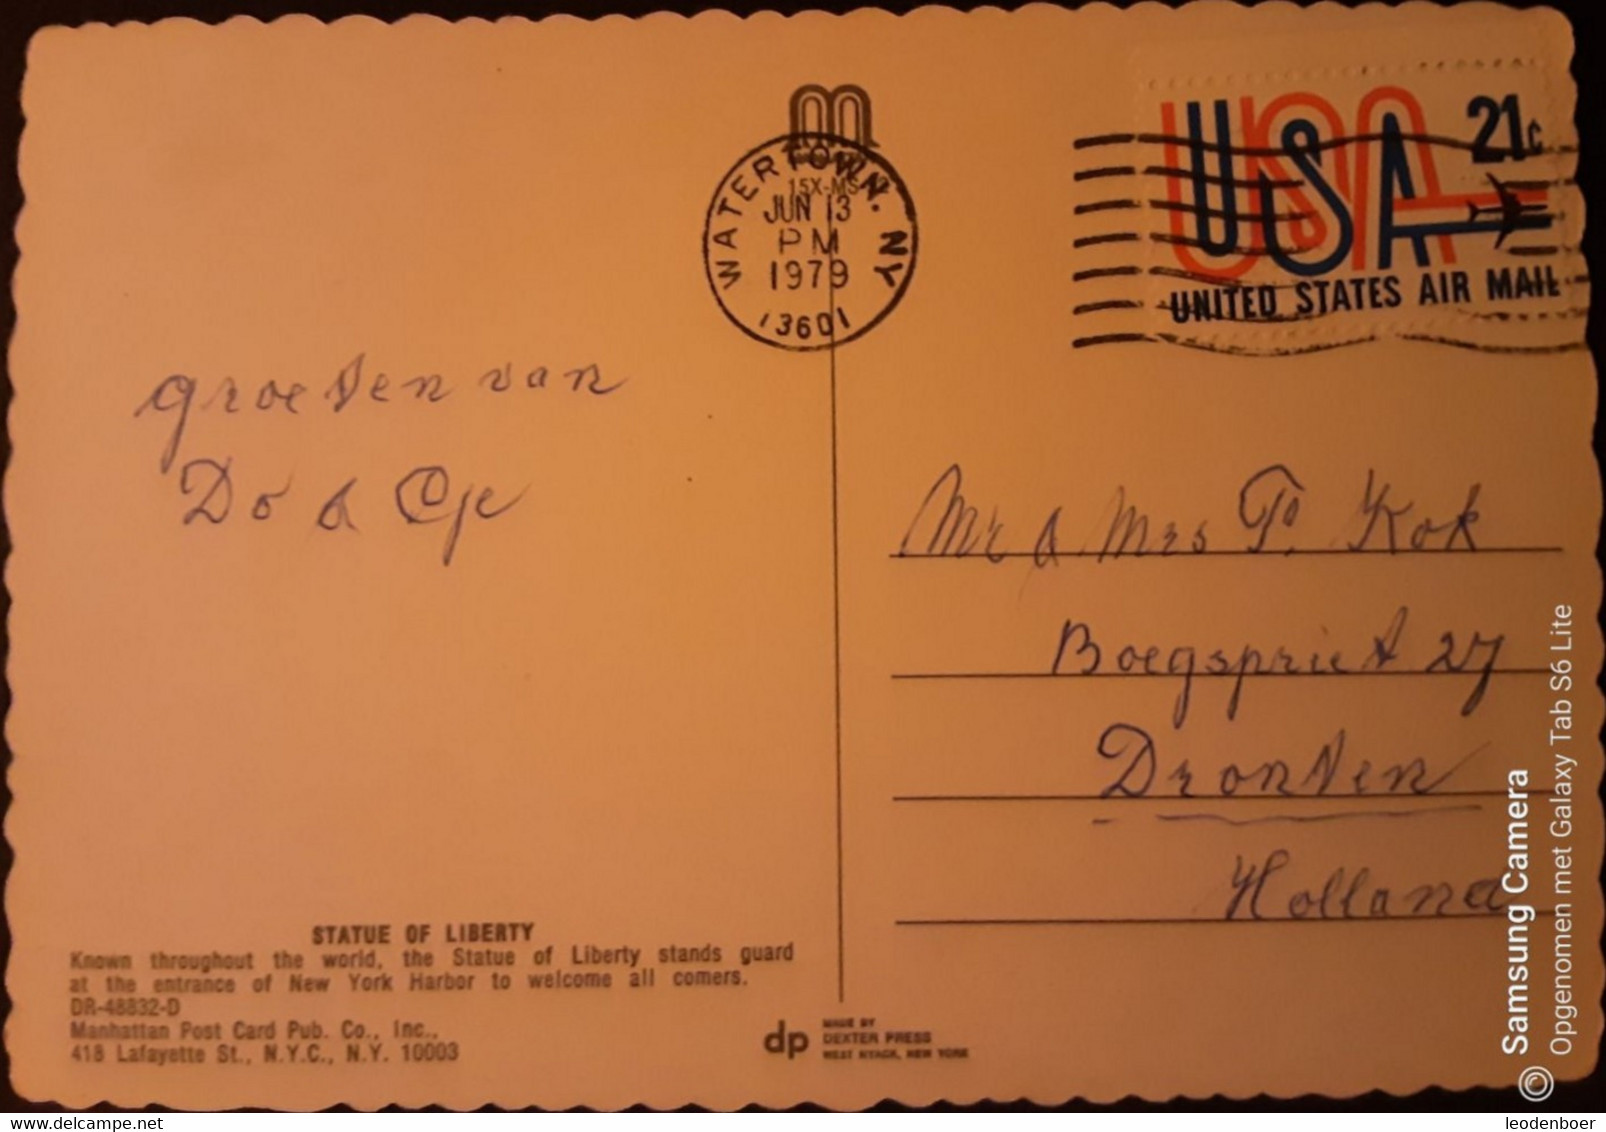 WATERTOWN. NY
15X-MS-2
JUN 13
PM
1979
13601
USA
21c
UNITED STATES AIR MAIL
groeten van
Do & Cye
Mr & Mrs P. Kok
Boegspriet 27
Dronten
Holland
STATUE OF LIBERTY
Known throughout the world, the Statue of Liberty stands guard
at the entrance of New York Harbor to welcome all comers.
DR-48832-D
Manhattan Post Card Pub. Co., Inc.,
418 Lafayette St., N.Y.C., N.Y. 10003
dp
MADE BY
DEXTER PRESS
WEST NYACK, NEW YORK
© Samsung Camera
Opgenomen met Galaxy Tab S6 Lite
delcampe.net
leodenboer